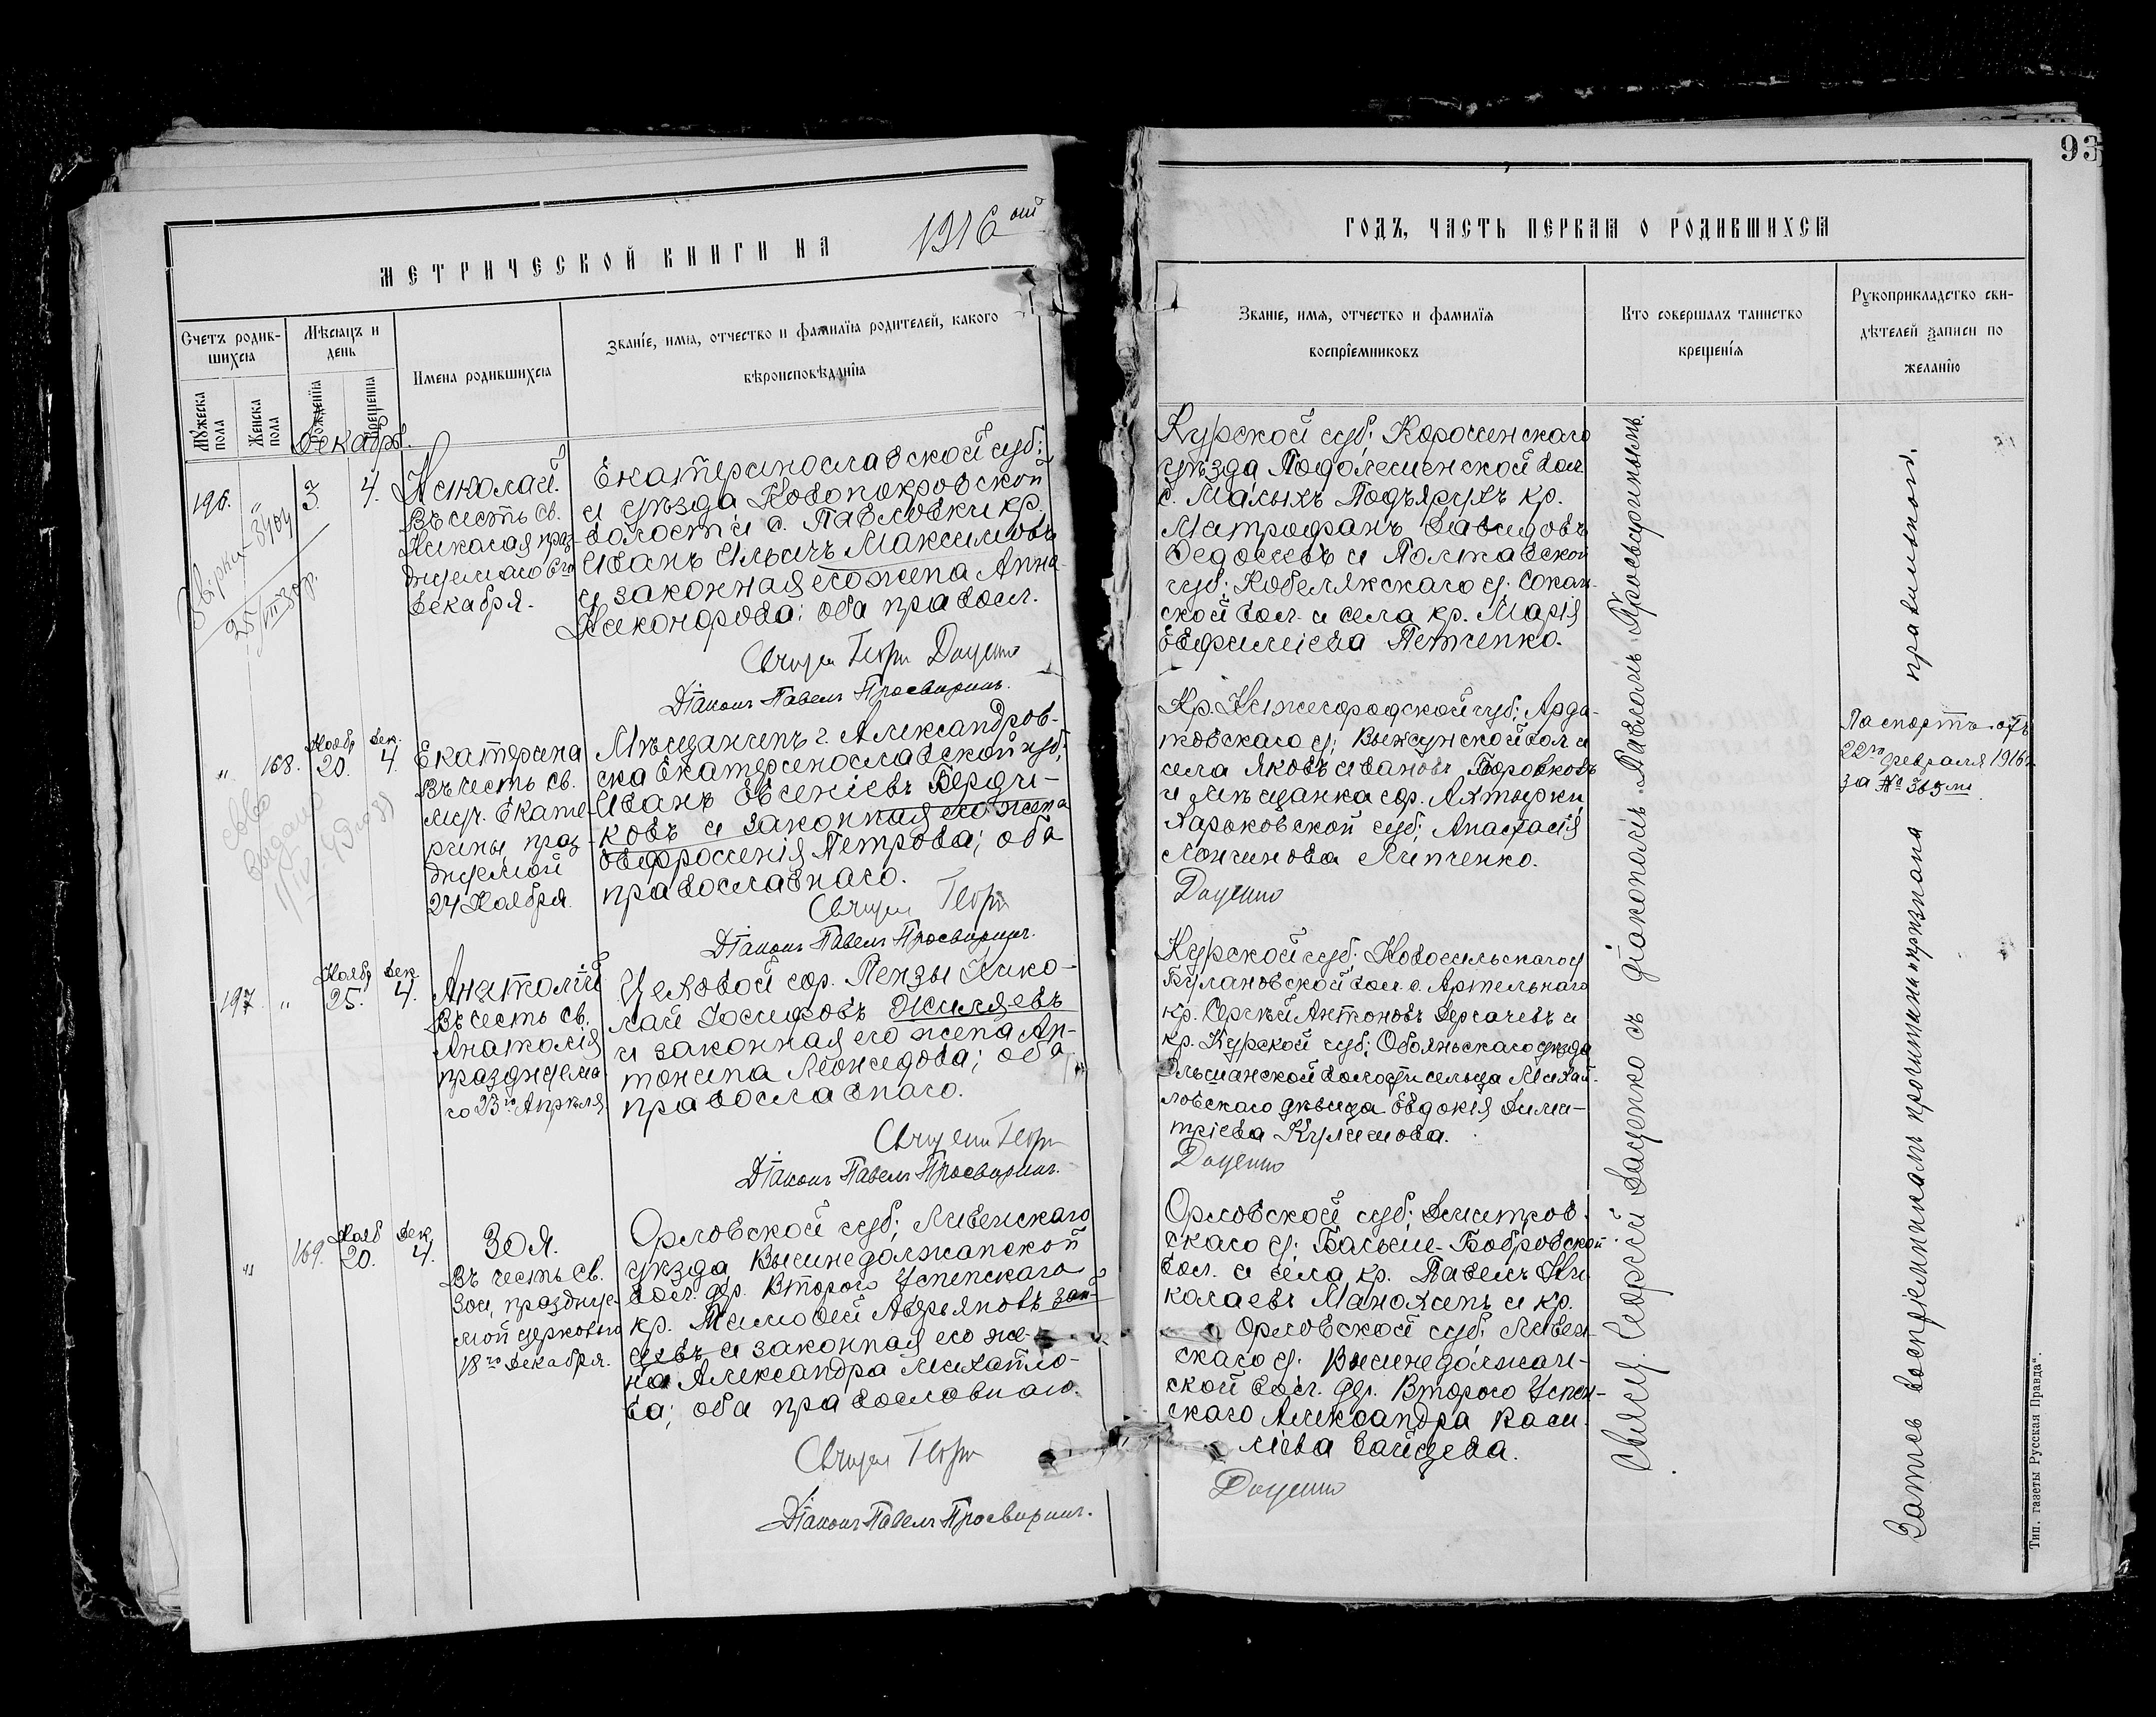 93
МЕТРИЧЕСКОЙ КНИГИ НА 1916 ый
ГОДЪ, ЧАСТЬ ПЕРВАЯ О РОДИВШИХСЯ
Счетъ родив-
шихся
Мѣсяцъ и
день
Мужеска
пола
Женска
пола
Рожденія
Крещенія
Имена родившихся
Званіе, имя, отчество и фамилія родителей, какого
вѣроисповѣданія
Званіе, имя, отчество и фамилія
воспріемниковъ
Кто совершалъ таинство
крещенія
Рукоприкладство сви-
дѣтелей записи по
желанію
Декабрь.
196. " 3 4.
Николай.
Въ честь св.
Николая праз-
днуемаго 6го
Декабря.
Екатеринославской губ.
и уѣзда Новопокровской
волости и с. Павловки кр.
Иванъ Ильичъ Максимовъ
и законная его жена Анна
Никонорова; оба правосл.
Священ Георг Даценко
Діаконъ Павелъ Просвиринъ.
Курской губ; Корочинскаго
уѣзда, Подолешенской вол.
с. Малыхъ Подъяругъ кр.
Митрофанъ Давидовъ
Ѳедосѣевъ и Полтавской
губ; Кобелякскаго у; Сокол-
ской вол. и села кр. Марія
Евфиміева Петченко.
" 168. Нояб 20. Дек. 4.
Екатерина
Въ честь св.
муч. Екате-
рины, праз-
днуемой
24 Ноября.
Мѣщанинъ г. Александров-
ска Екатеринославской губ;
Иванъ Евсеніевъ Бердни-
ковъ и законная его жена
Евфросинія Петрова; оба
православнаго.
Священ Георг
Діаконъ Павелъ Просвиринъ.
Кр. Нижегородской губ; Арда-
товскаго у; Выксунской вол. и
села Яковъ Ивановъ Боровковъ
и мѣщанка гор. Ахтырки,
Харьковской губ; Анастасія
Логинова Липченко.
Даценко
Паспортъ отъ
22го февраля 1916 г.
за № 365 мъ
197. " Нояб 25. Дек. 4.
Анатолій
Въ честь св.
Анатолія
празднуема-
го 23го Апрѣля.
Цеховой гор. Пензы Нико-
лай Іосифовъ Жиляевъ
и законная его жена Ан-
тонина Леонидова; оба
православнаго.
Священ Георг
Діаконъ Павелъ Просвиринъ.
Курской губ; Новосильскаго у
Булановской вол. с. Артельнаго
кр. Сергѣй Антоновъ Дергачевъ и
кр. Курской губ; Обоянскаго уѣзда
Ольшанской волости сельца Михай-
ловскаго дѣвица Евдокія Дими-
тріева Куликова.
Даценко
" 169. Нояб 20. Дек. 4.
Зоя.
Въ честь св.
Зои, праздну-
мой церковью
18го Декабря.
Орловской губ; Ливенскаго
уѣзда Вышнедолжанской
вол. дер. Второго Успенскаго
кр. Тимоѳей Аверьяновъ Зай-
цевъ и законная его же-
на Александра Михайло-
ва; оба православнаго.
Священ Георг
Діаконъ Павелъ Просвиринъ.
Орловской губ; Дмитров-
скаго у; Балыки-Бобровской
вол. и села, кр. Павелъ Ни-
колаевъ Манохинъ и кр.
Орловской губ. Ливен-
скаго у; Вышнедолжан-
ской вол. дер. Второго Успен-
скаго Александра Васи-
ліева Зайцева.
Даценко
Священ. Георгій Даценко съ діакономъ Павломъ Просвиринымъ.
Запись воспріемниками прочитана и признана правильной.
Тип. газеты „Русская Правда".